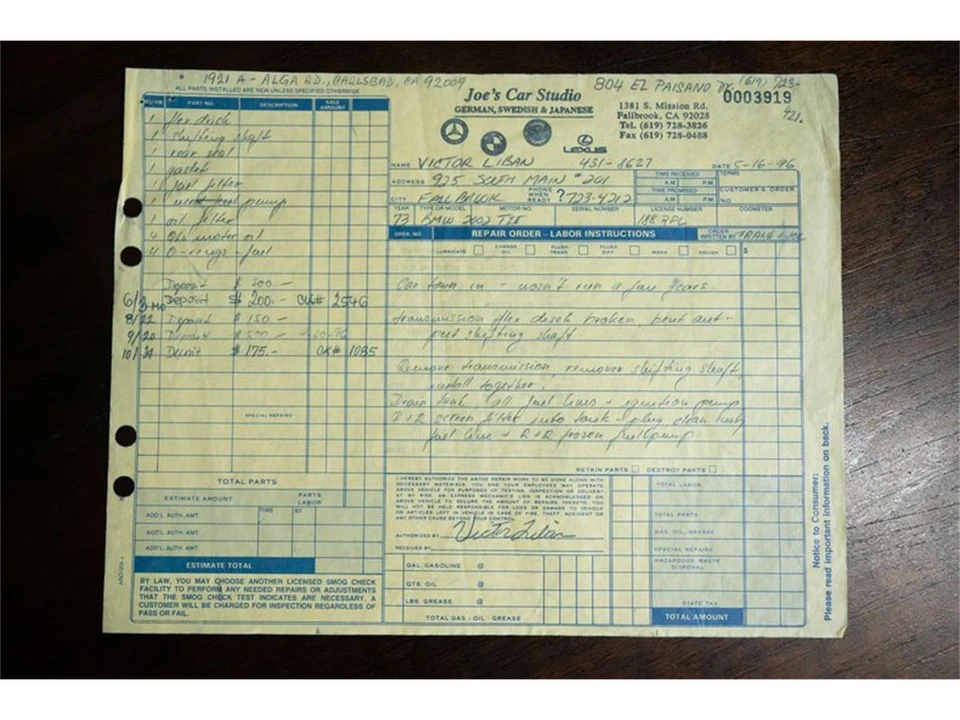 1921 A - ALGA RD., CARLSBAD, CA 92009
804 EL PAISANO DR (619) 723-
421.
ALL PARTS INSTALLED ARE NEW UNLESS SPECIFIED OTHERWISE
QUAN. PART NO. DESCRIPTION SALE AMOUNT
1 flex disck
1 shifting shaft
1 rear seal
1 gasket
1 fuel filter
1 fuel pump
1 oil filter
4 motor oil
4 O-rings - fuel
Deposit $ 300.-
6/3 Deposit $ 200.- CK# 2546
8/22 Deposit $ 150 -
9/20 Deposit $ 500 -
10/31 Deposit $ 175.- CK# 1035
SPECIAL REPAIRS
TOTAL PARTS
ESTIMATE AMOUNT PARTS LABOR
ADD'L AUTH. AMT. TIME BY
ADD'L AUTH. AMT.
ADD'L AUTH. AMT.
ESTIMATE TOTAL
BY LAW, YOU MAY CHOOSE ANOTHER LICENSED SMOG CHECK
FACILITY TO PERFORM ANY NEEDED REPAIRS OR ADJUSTMENTS
THAT THE SMOG CHECK TEST INDICATES ARE NECESSARY. A
CUSTOMER WILL BE CHARGED FOR INSPECTION REGARDLESS OF
PASS OR FAIL.
Joe's Car Studio
GERMAN, SWEDISH & JAPANESE
LEXUS
0003919
1381 S. Mission Rd.
Fallbrook, CA 92028
Tel. (619) 728-3826
Fax (619) 728-0488
NAME VICTOR LIBAN 431-8627 DATE 5-16-96
ADDRESS 925 SOUTH MAIN #201 TIME RECEIVED A.M. P.M. TERMS
CITY FALLBROOK PHONE WHEN READY ? 723-4212 TIME PROMISED A.M. P.M. CUSTOMER'S ORDER NO.
YEAR TYPE OR MODEL MOTOR NO. SERIAL NUMBER LICENSE NUMBER ODOMETER
73 BMW 2002 TII 188 BPL
OPER. NO. REPAIR ORDER - LABOR INSTRUCTIONS ORDER WRITTEN BY
LUBRICATE CHANGE OIL FLUSH TRANS. FLUSH DIFF. WASH POLISH $
Car town in - wasn't run a few years.
transmission flex disck broken, bent out-
put shifting shaft
Remove transmission, remover shifting shaft
install together.
Drain tank all fuel lines + ignition pump
R+R screen filter into tank - plug clean rusty
fuel line + R+R frozen fuel pump
RETAIN PARTS DESTROY PARTS
I HEREBY AUTHORIZE THE ABOVE REPAIR WORK TO BE DONE ALONG WITH
NECESSARY MATERIALS. YOU AND YOUR EMPLOYEES MAY OPERATE
ABOVE VEHICLE FOR PURPOSES OF TESTING, INSPECTION OR DELIVERY
AT MY RISK. AN EXPRESS MECHANIC'S LIEN IS ACKNOWLEDGED ON
ABOVE VEHICLE TO SECURE THE AMOUNT OF REPAIRS THERETO. YOU
WILL NOT BE HELD RESPONSIBLE FOR LOSS OR DAMAGE TO VEHICLE
OR ARTICLES LEFT IN VEHICLE IN CASE OF FIRE, THEFT, ACCIDENT OR
ANY OTHER CAUSE BEYOND YOUR CONTROL.
AUTHORIZED BY Victor Liban
RECEIVED BY
GAL. GASOLINE @
QTS. OIL @
LBS. GREASE @
TOTAL GAS - OIL - GREASE
TOTAL LABOR
TOTAL PARTS
GAS, OIL, GREASE
SPECIAL REPAIRS
HAZARDOUS WASTE DISPOSAL
STATE TAX
TOTAL AMOUNT
Notice to Consumer:
Please read important information on back.